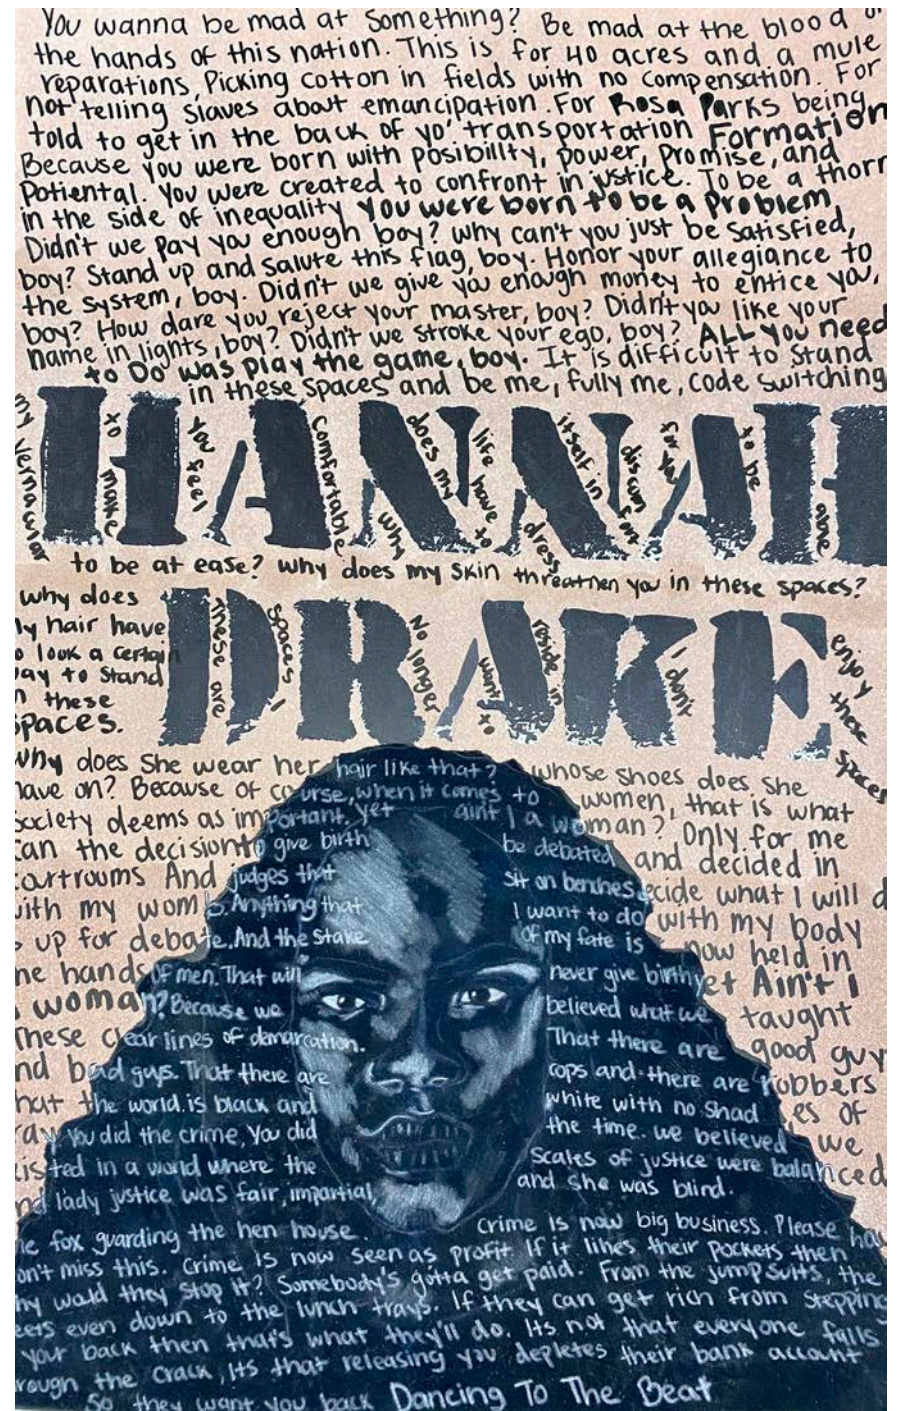 You wanna be mad at something? Be mad at the blood
the hands of this nation. This is for 40 acres and a mule
reparations, Picking cotton in fields with no compensation. For
not telling slaves about emancipation. For Rosa Parks being
told to get in the back of yo' transportation Formation
Because you were born with posibillty, power, Promise, and
Potiental. You were created to confront injustice. To be a thorn
in the side of inequality You were born to be a Problem
Didn't we pay you enough boy? Why can't you just be satisfied,
boy? Stand up and salute this flag, boy. Honor your allegiance to
the system, boy. Didn't we give you enough money to entice you,
boy? How dare you reject your master, boy? Didn't you like your
name in lights, boy? Didn't we stroke your ego, boy? ALL you need
to Do was play the game, boy. It is difficult to stand
in these spaces and be me, fully me, code switching
HANNAH
my vernacular to make you feel comfortable why does my life have to dress itself in for you to be
to be at ease? Why does my skin threatnen you in these spaces?
why does
y hair have
o look a certain
ay to stand
n these
spaces.
DRAKE
these are spaces I No longer want to reside in I don't enjoy these spaces
why does she wear her hair like that? whose shoes does she
have on? Because of course, when it comes to women, that is what
society deems as important, yet aint I a woman? Only for me
can the decision to give birth be debated and decided in
courtrooms And judges that sit on benches ecide what I will d
with my womb. Anything that I want to do with my body
s up for debate. And the stake of my fate is now held in
he hands of men. That will never give birth yet Ain't I
woman? Because we believed what we taught
These clear lines of demarcation. That there are good guy
nd bad guys. That there are cops and there are robbers
hat the world is black and white with no shades of
ray you did the crime, You did the time. we believed we
isted in a world where the scales of justice were balanced
nd lady justice was fair, impartial, and she was blind.
e fox guarding the hen house. Crime is now big business. Please ha
on't miss this. Crime is now seen as profit If it lines their pockets then
hy would they stop it? Somebody's gotta get paid. From the jumpsuits, the
eets even down to the lunch trays. If they can get rich from stepping
your back then that's what they'll do. Its not that everyone falls
rough the crack, Its that releasing you depletes their bank account
So they want you back Dancing To The Beat